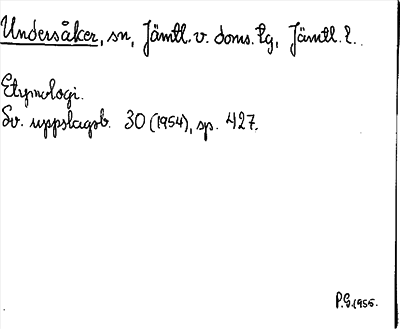 Undersåker, sn, Jämtl. v. doms. tg, Jämtl. l.
Etymologi.
Sv. uppslagsb. 30 (1954), sp. 427.
P.G. 1956.